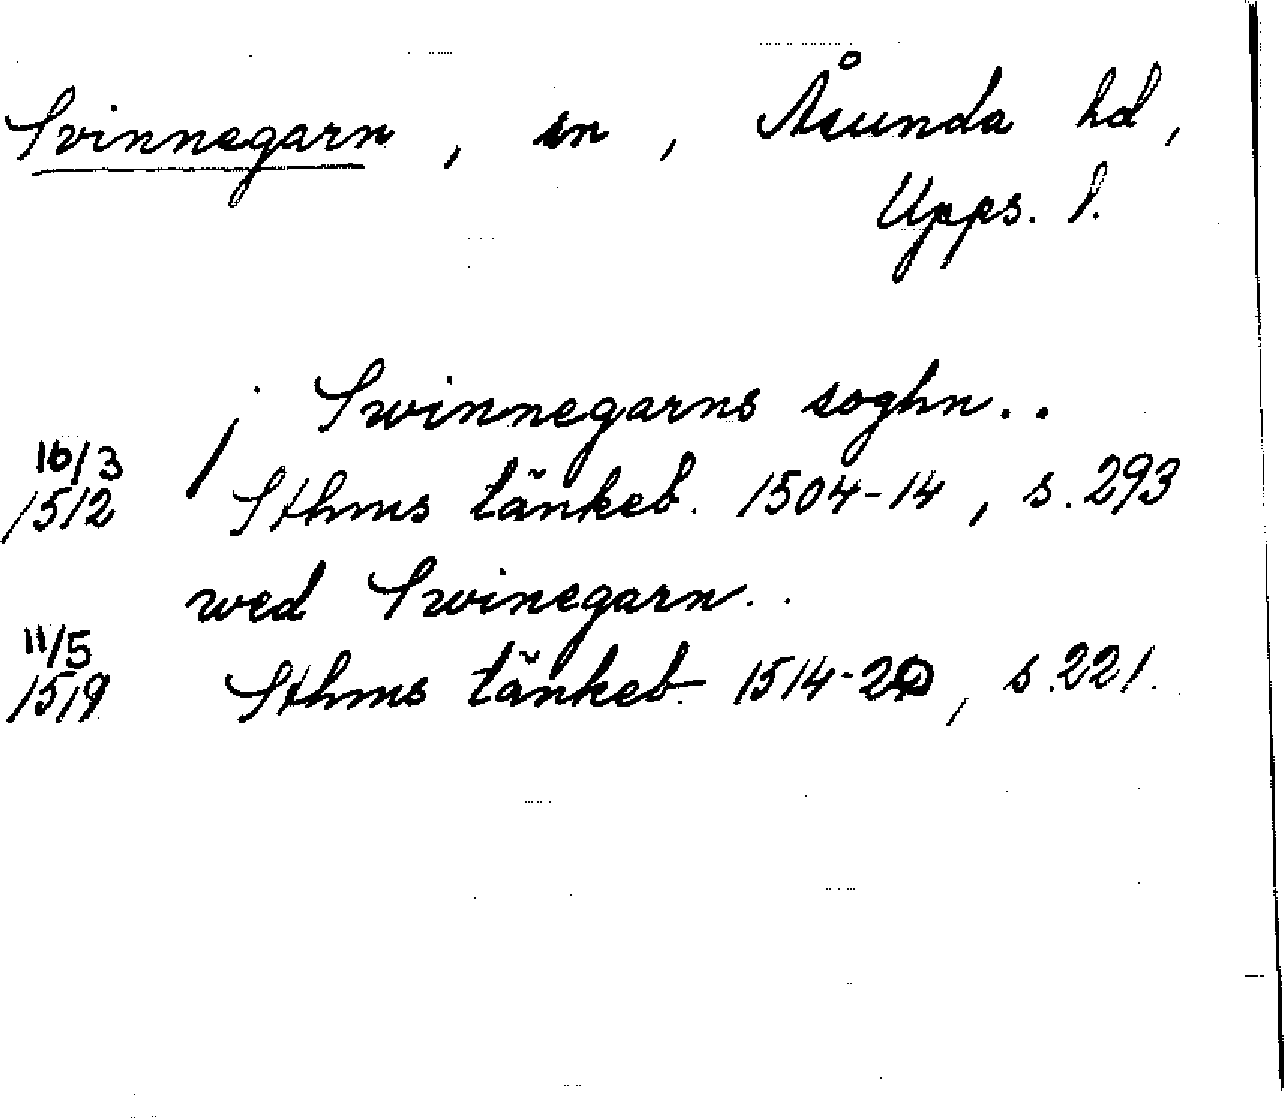 Svinnegarn, sn, Åsunda hd,
Upps. l.
j Swinnegarns soghn..
16/3 1512 Sthms tänkeb. 1504-14, s. 293
wed Swinegarn..
11/5 1519 Sthms tänkeb. 1514-20, s. 221.